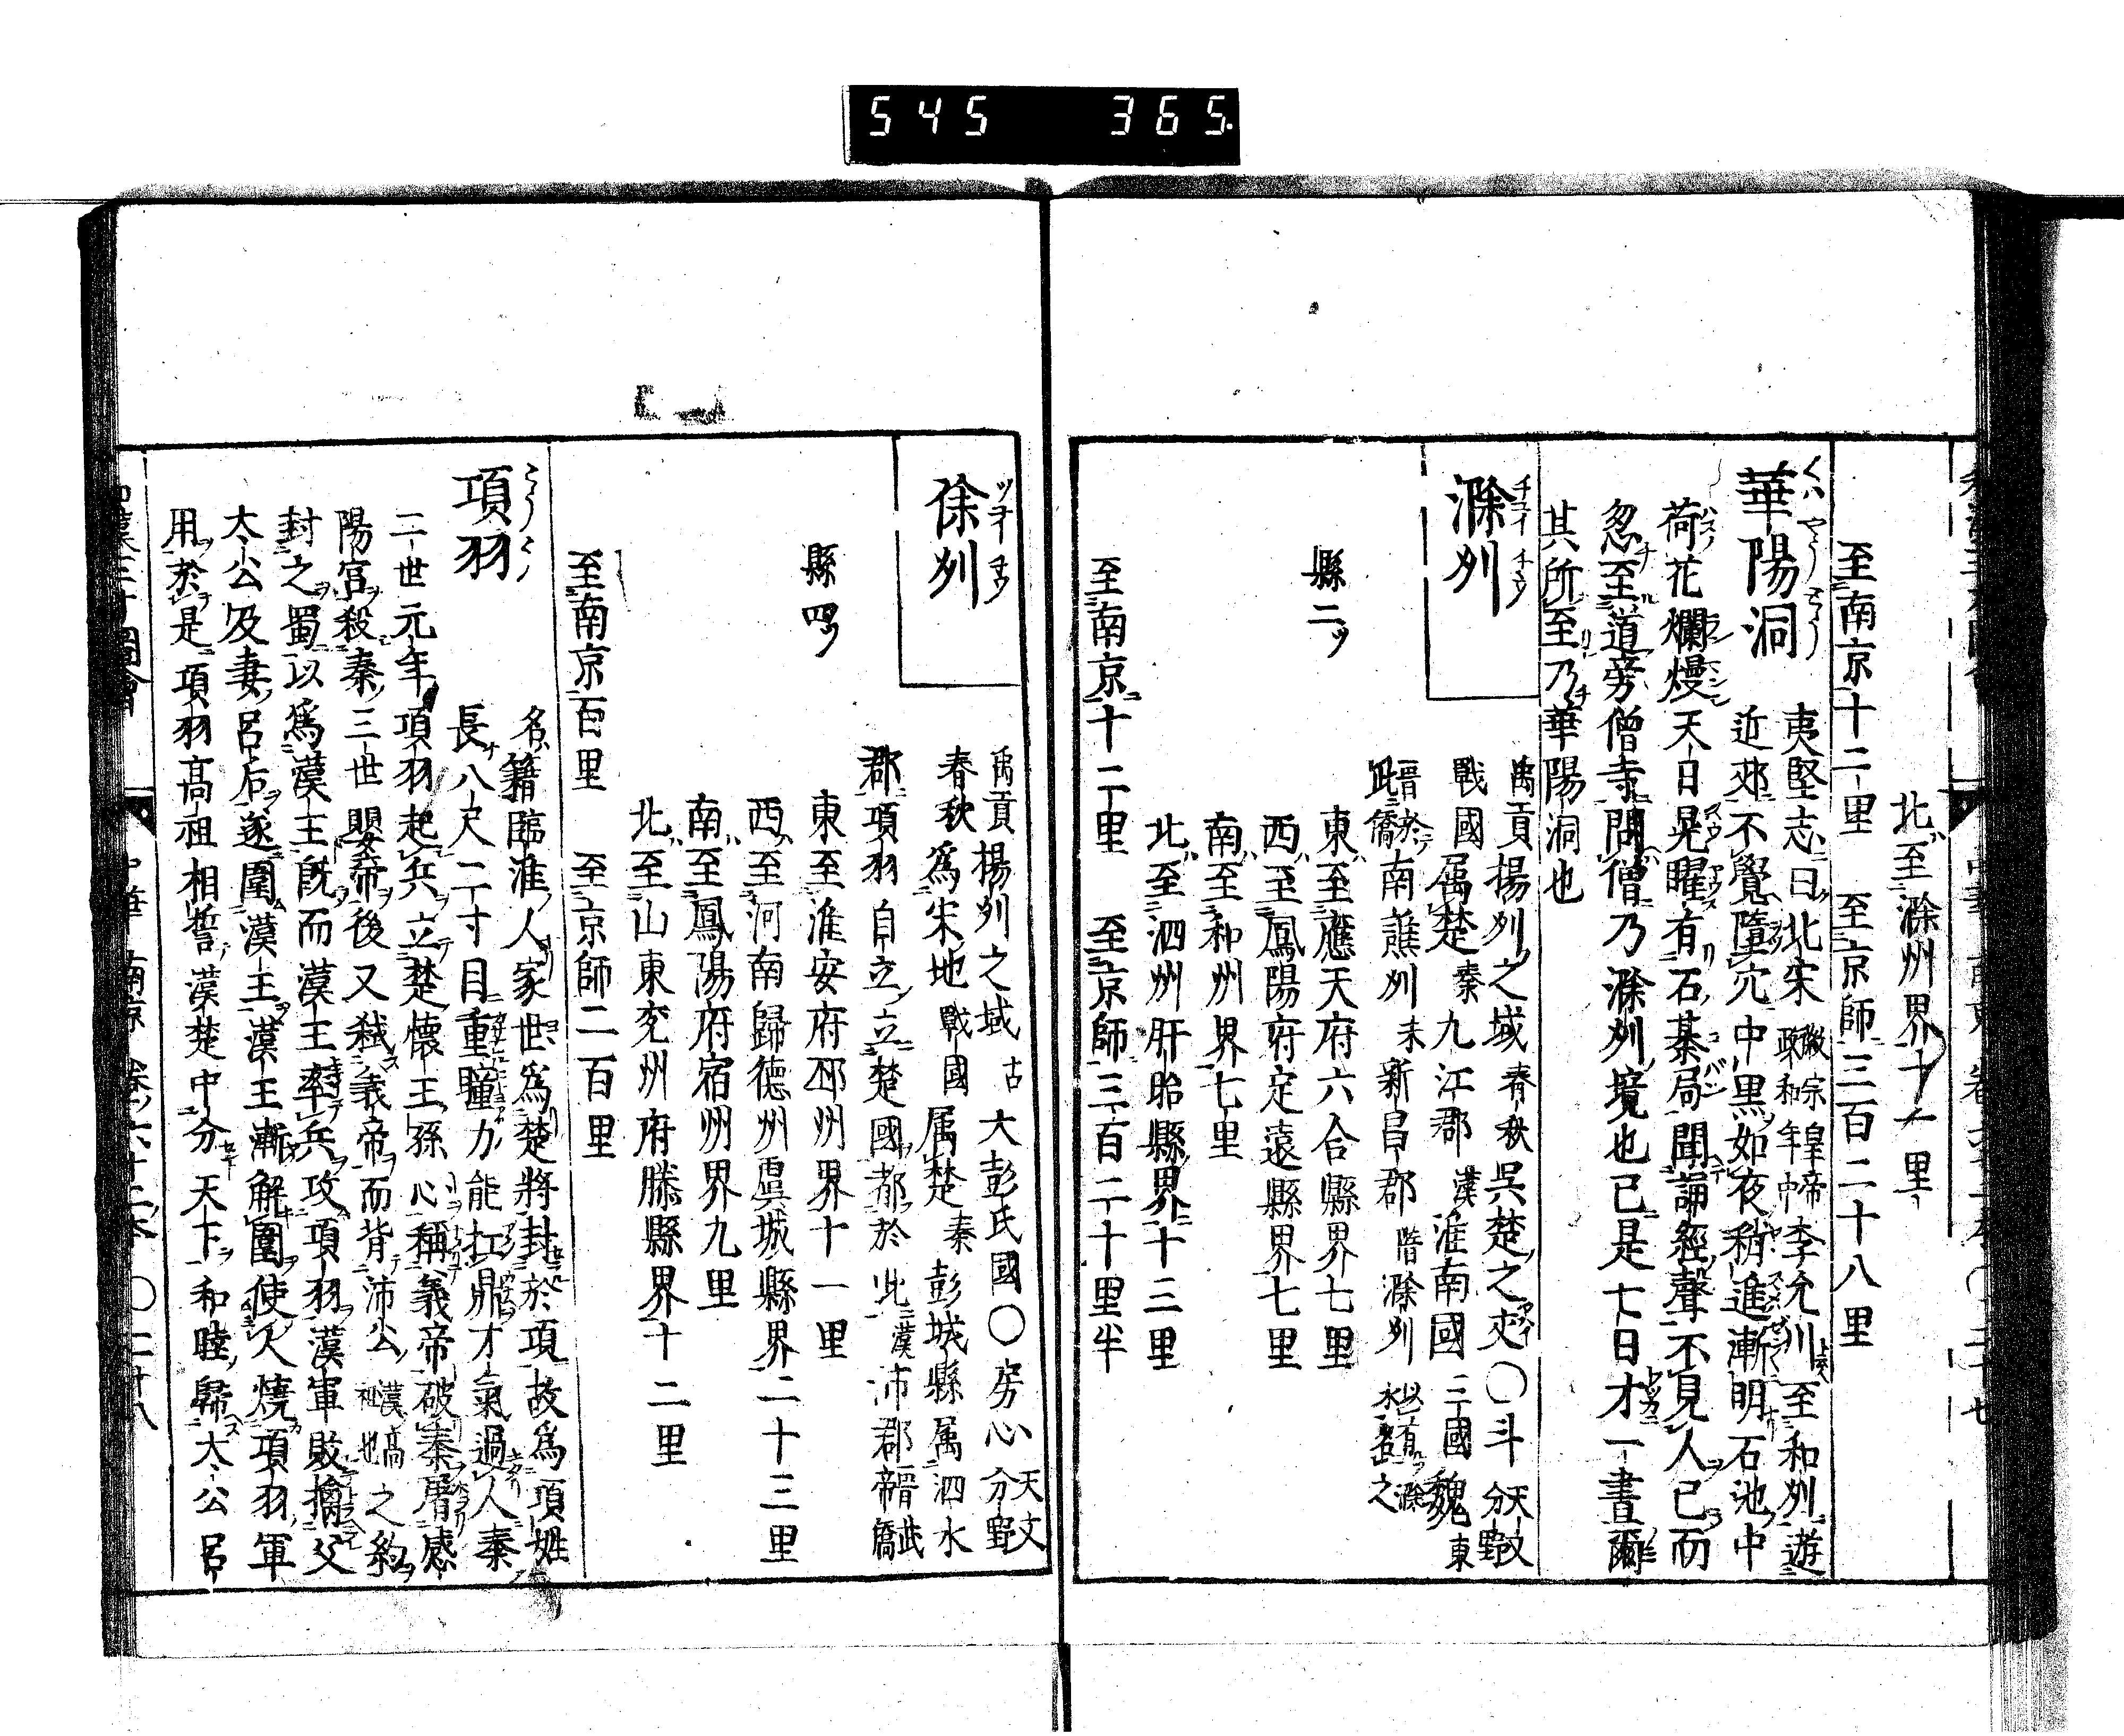 545 365
北至滁州界十一里
至南京十二里 至京師三百二十八里
華陽洞 夷堅志曰北宋徽宗皇帝政和年中李允川至和州遊
近郊不覺墮穴中黒如夜稍進漸明石池中
荷花爛熳天日晃曜有石棊局聞誦經聲不見人已而
忽至道旁僧寺問僧乃滁州境也已是七日才一晝爾
其所至乃華陽洞也
滁州 チユイ チウ
禹貢揚州之域春秋吳楚之交〇斗天文分野
戰國属楚秦九江郡漢淮南國三國魏東
晉於此僑南譙州末新昌郡隋滁州以有滁水名之
縣二ツ
東至應天府六合縣界七里
西至鳳陽府定遠縣界七里
南至和州界七里
北至泗州肝眙縣界十三里
至南京十二里 至京師三百二十里半
徐州 ツヨイ チウ
禹貢揚州之域古大彭氏國〇房心天文分野
春秋爲宋地戰國属楚秦彭城縣属泗水
郡項羽自立立楚國都於此漢沛郡晉帝僑此
縣四ツ
東至淮安府邳州界十一里
西至河南歸德州虞城縣界二十三里
南至鳳陽府宿州界九里
北至山東兗州府滕縣界十二里
至南京百里 至京師二百里
項羽 こうう
名籍臨淮人家世爲楚將封於項故爲項姓
長八尺二寸目重瞳力能扛鼎才氣過人秦
二世元年項羽起兵立楚懷王孫心稱義帝破秦屠咸
陽宮殺秦三世嬰帝後又弑義帝而背沛公漢高祖也之約
封之蜀以爲漢王既而漢王率兵攻項羽漢軍敗擒父
太公及妻呂后遂圍漢王漢王漸解圍使人燒項羽軍
用於是項羽高祖相誓漢楚中分天下和睦歸太公呂
中華 南京 卷六十二本 〇二十八